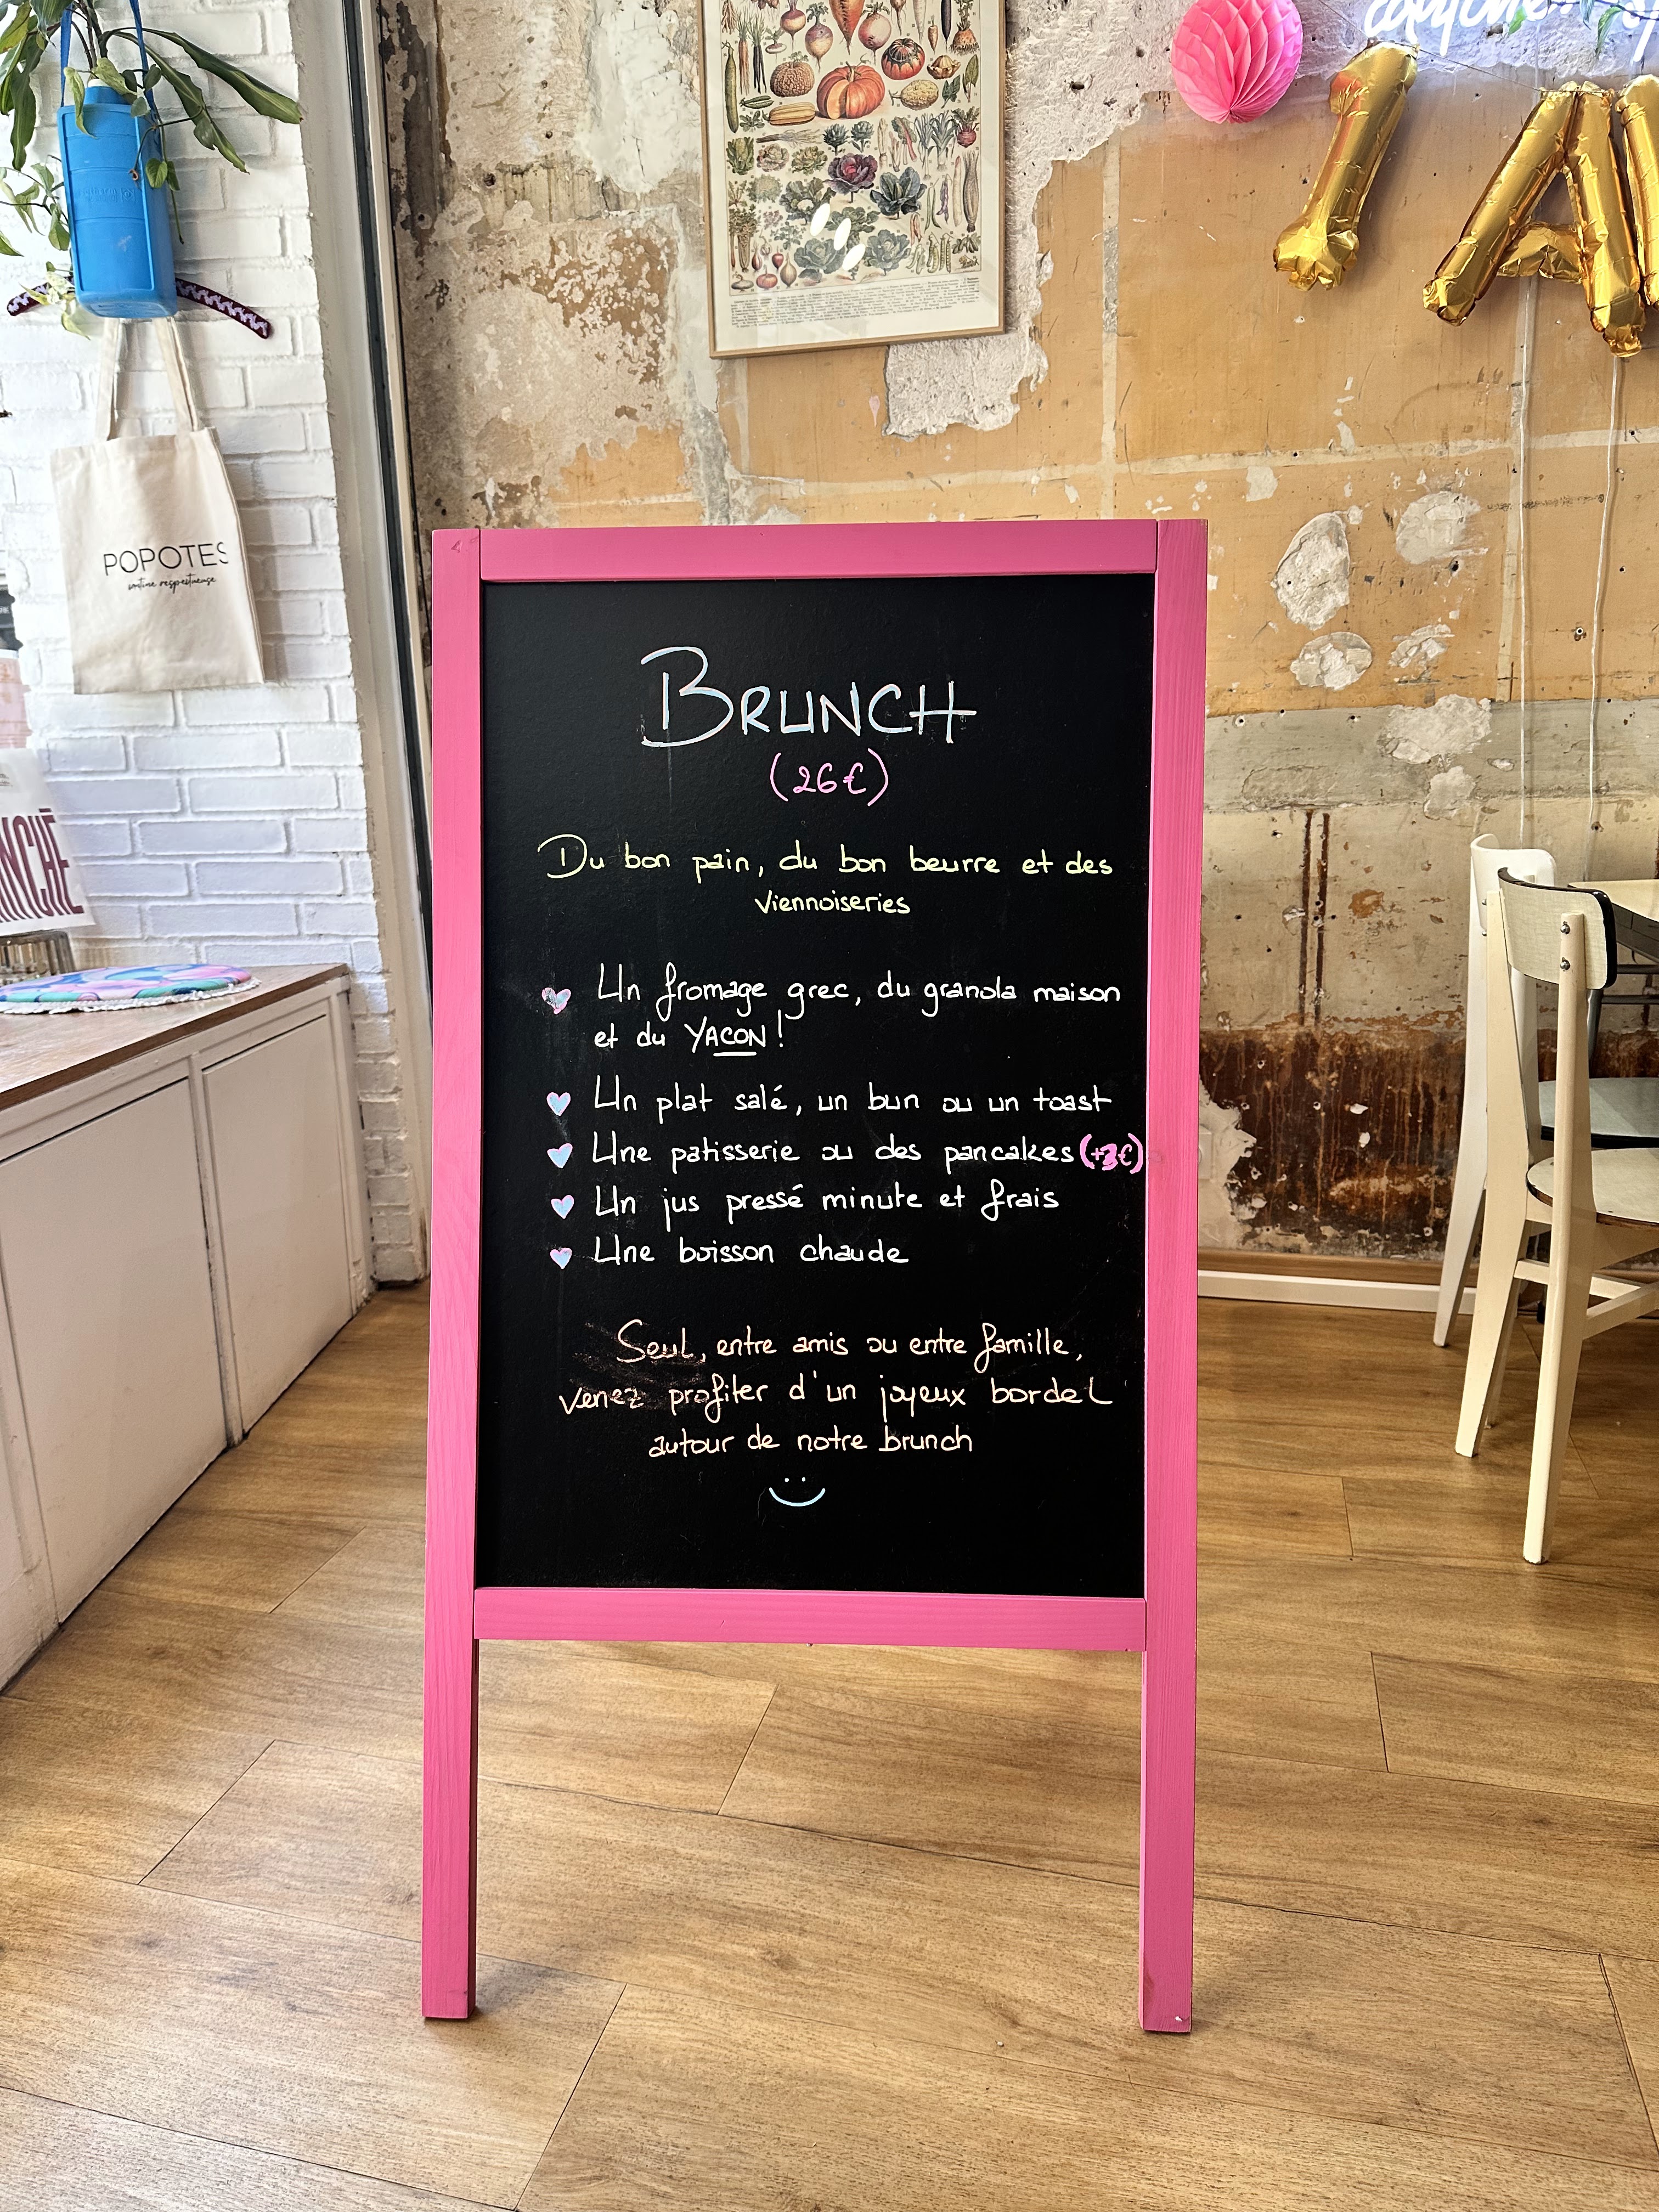 POPOTES
cantine respectueuse
BRUNCH
(26€)
Du bon pain, du bon beurre et des
viennoiseries
Un fromage grec, du granola maison
et du YACON !
Un plat salé, un bun ou un toast
Une patisserie ou des pancakes (+3€)
Un jus pressé minute et frais
Une boisson chaude
Seul, entre amis ou entre famille,
venez profiter d'un joyeux bordel
autour de notre brunch
1 A